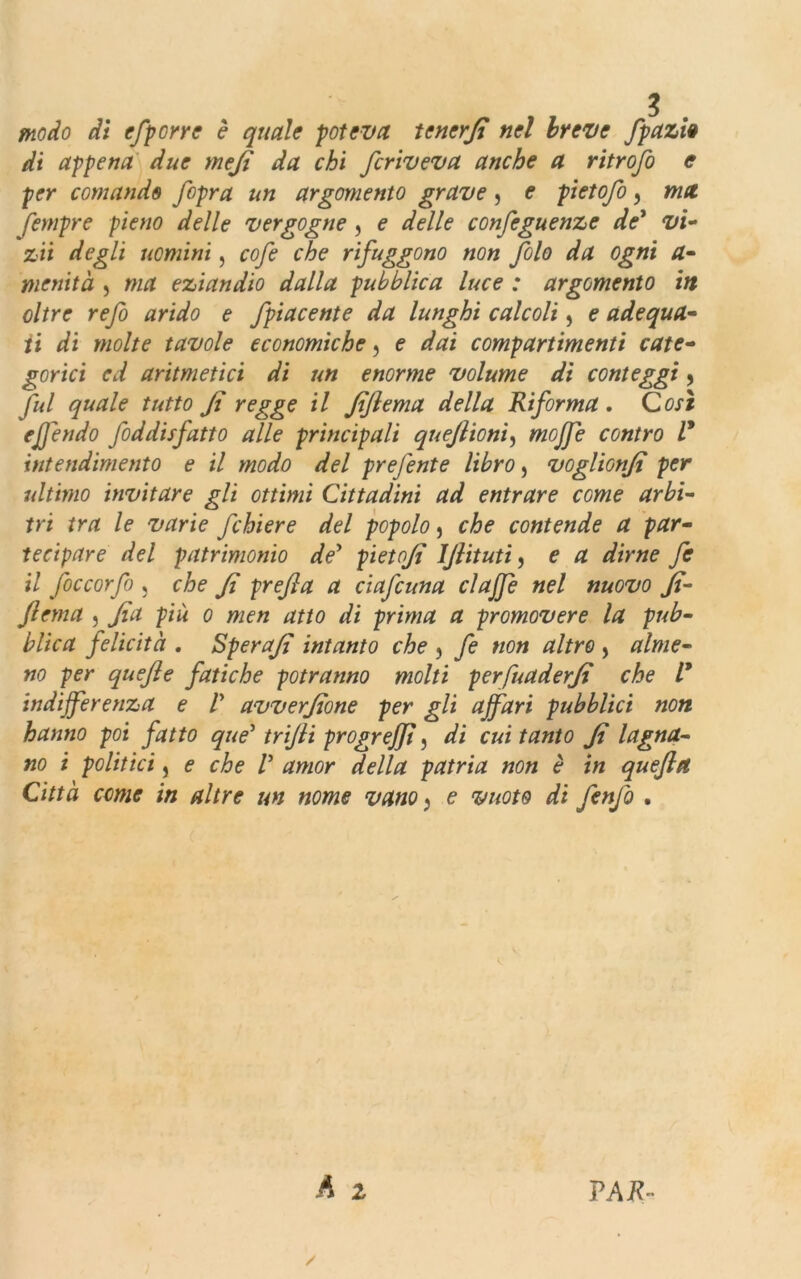 3
modo di eſporre è quale poteva tenerſi nel breve ſpazio
di appena due meſi da chi ſcriveva anche a ritroſo e
per comando ſopra un argomento grave, e pietoſo, ma
ſempre pieno delle vergogne, e delle conſeguenze de' vi-
zii degli uomini, coſe che rifuggono non ſolo da ogni a-
menità, ma eziandio dalla pubblica luce: argomento in
oltre reſo arido e ſpiacente da lunghi calcoli, e adequa-
ti di molte tavole economiche, e dai compartimenti cate-
gorici ed aritmetici di un enorme volume di conteggi,
ſul quale tutto ſi regge il ſiſtema della Riforma. Così
eſſendo ſoddisfatto alle principali queſtioni, moſſe contro l'
intendimento e il modo del preſente libro, voglionſi per
ultimo invitare gli ottimi Cittadini ad entrare come arbi-
tri tra le varie ſchiere del popolo, che contende a par-
tecipare del patrimonio de' pietoſi Iſtituti, e a dirne ſe
il ſoccorſo, che ſi preſta a ciaſcuna claſſe nel nuovo ſi-
ſtema, ſia più o men atto di prima a promovere la pub-
blica felicità. Speraſi intanto che, ſe non altro, alme-
no per queſte fatiche potranno molti perſuaderſi che l'
indifferenza e l' avverſione per gli affari pubblici non
hanno poi fatto que' triſti progreſſi, di cui tanto ſi lagna-
no i politici, e che l' amor della patria non è in queſta
Città come in altre un nome vano, e vuoto di ſenſo.
A 2 PAR-